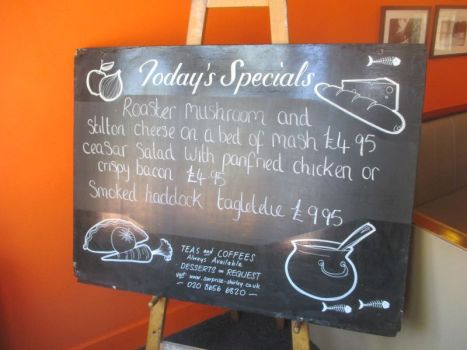 Today's Specials
Roaster mushroom and
stilton cheese on a bed of mash £4.95
ceasar salad with panfried chicken or
crispy bacon £4.95
Smoked haddock tagletelie £9.95
TEAS and COFFEES
Always Available
DESSERTS on REQUEST
visit www.surprise-shirley.co.uk
~ 020 8656 6820 ~